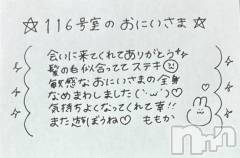 ☆116号室のおにいさま☆
会いに来てくれてありがとう
髪の毛似合っててステキ
敏感なおにいさまの全身
なめまわしました(´ω`)♡
気持ちよくなってくれて幸!!
また遊ぼうね♡ ももか